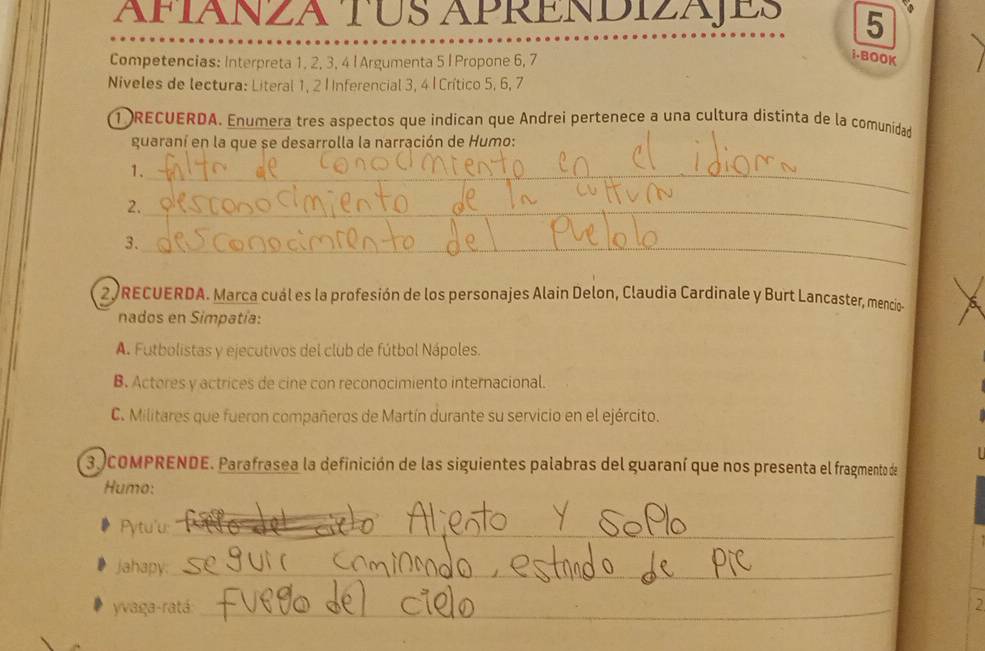 AFIANZA TUS APRENDIZAJES
5
i-BOOK
Competencias: Interpreta 1, 2, 3, 4 | Argumenta 5 | Propone 6, 7
Niveles de lectura: Literal 1, 2 | Inferencial 3, 4 | Crítico 5, 6, 7
1. RECUERDA. Enumera tres aspectos que indican que Andrei pertenece a una cultura distinta de la comunidad
guaraní en la que se desarrolla la narración de Humo:
1. falta de conocimiento en el idioma
2. desconocimiento de la cultura
3. desconocimiento del pvelolo
2. RECUERDA. Marca cuál es la profesión de los personajes Alain Delon, Claudia Cardinale y Burt Lancaster, mencio-
nados en Simpatía:
A. Futbolistas y ejecutivos del club de fútbol Nápoles.
B. Actores y actrices de cine con reconocimiento internacional.
C. Militares que fueron compañeros de Martín durante su servicio en el ejército.
3. COMPRENDE. Parafrasea la definición de las siguientes palabras del guaraní que nos presenta el fragmento de
Humo:
Pytu'u: Aliento y soplo
Jahapy: seguir caminando, estando de pie
yvaga-ratá: fuego del cielo
2